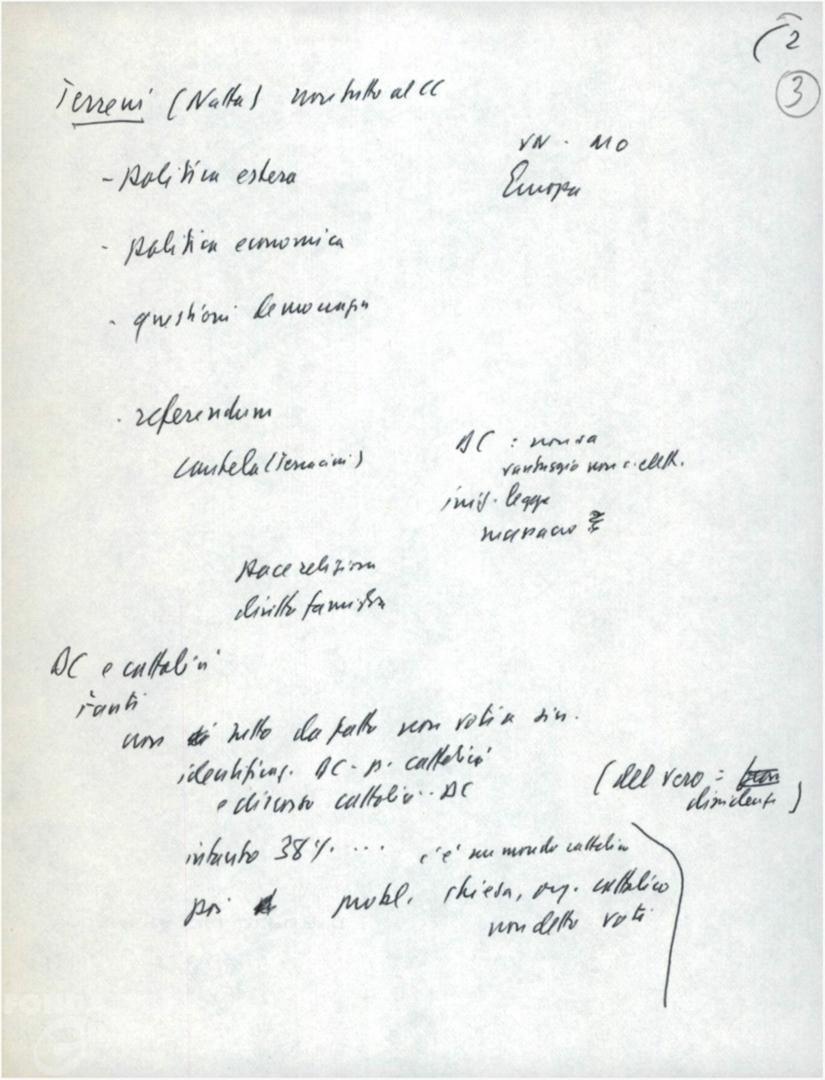 (2
3
Terreni (Natta) non tutto al CC
VN. MO
- politica estera
Europa
- politica economica
- questioni
. referendum
DC : non sa
cautela (Terracini)
vantaggio non elett.
iniz. legge
pace religiosa
diritto famiglia
DC e cattolici
Tanti
non detto da patto non voti a sin.
identificaz. DC - p. cattolici
e discorso cattolici - DC
(del vero =
dissidenti)
intanto 38% ....
c'è un mondo cattolico
poi
probl. chiesa, org. cattolico
non detto voti